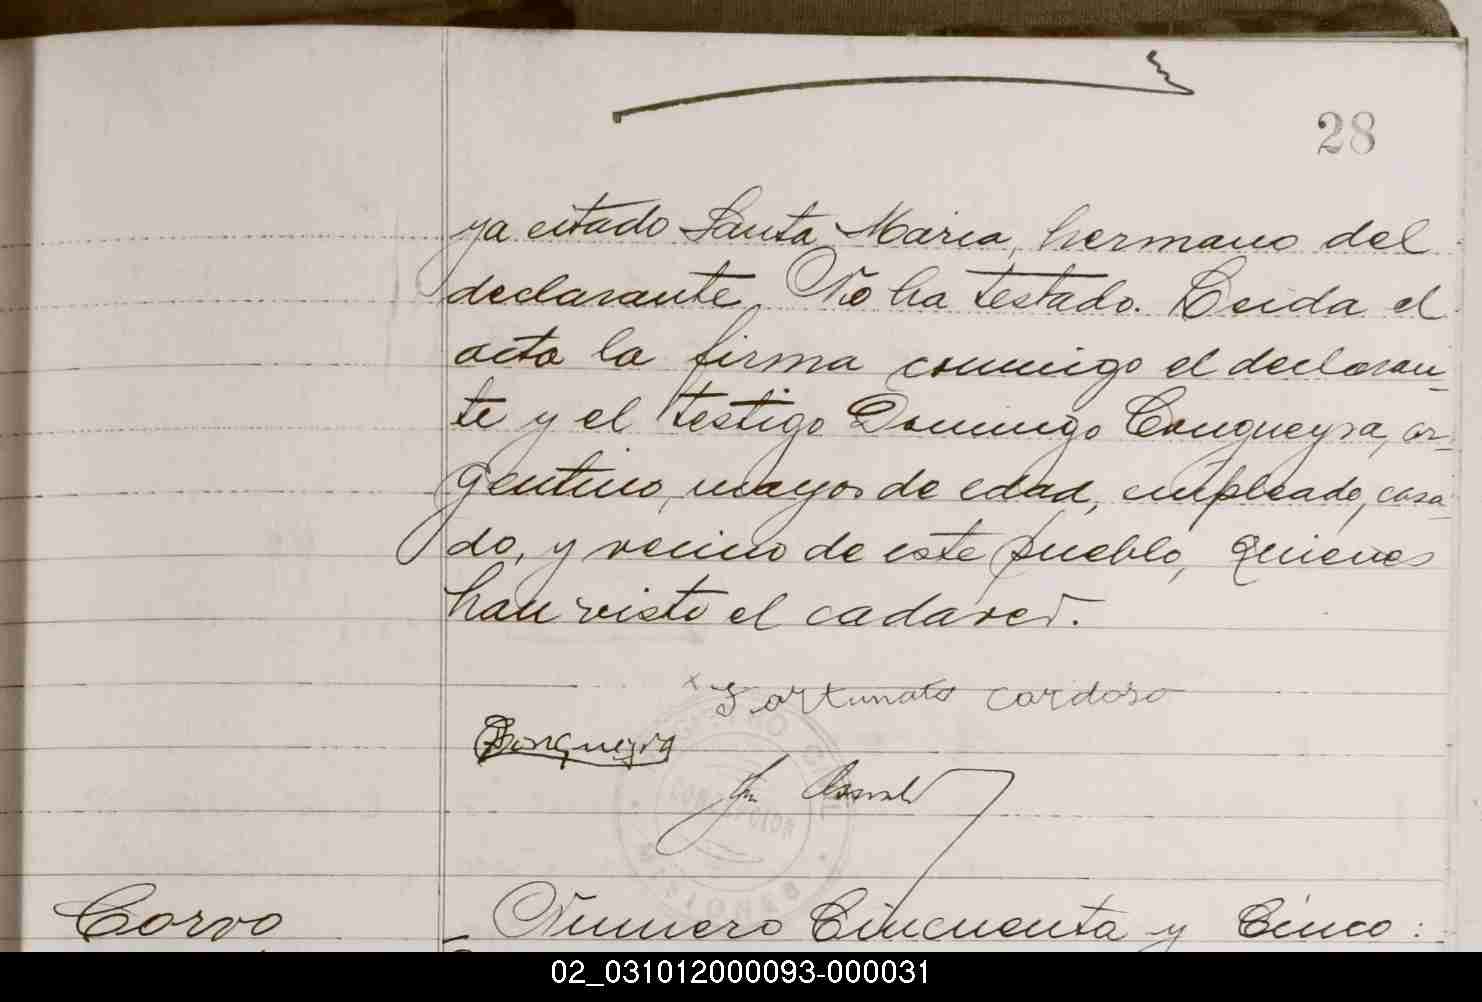 28
ya citado Santa Maria, hermano del
declarante. No ha testado. Leida el
acta la firma conmigo el declaran-
te y el testigo Domingo Congueyra, ar-
gentino, mayor de edad, empleado, casa-
do, y vecino de este pueblo, quienes
han visto el cadáver.
x Fortunato Cardoso
Corvo
Numero Cincuenta y Cinco:
02_031012000093-000031